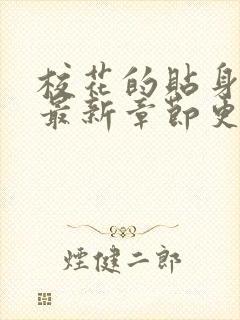 校花的貼身
最新章節更
煙健二郎